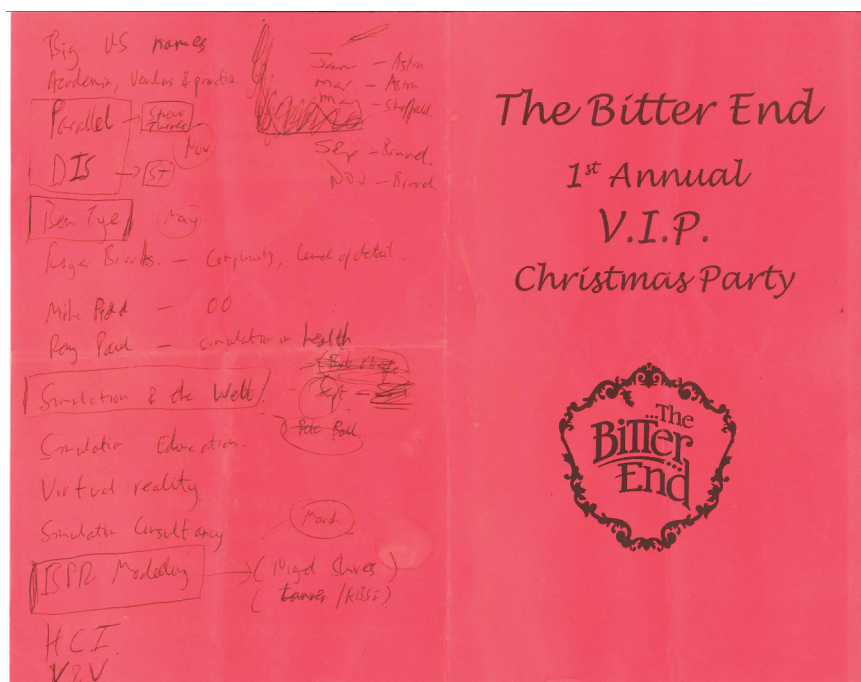 Big US names
Academia, Vendors & practice
Parallel
Steve
Turner
Nov
DIS
ST
Ben Tye
May
Roger Brooks. - Complexity, level of detail.
Mike Pidd - OO
Ray Paul - simulation in health
Simulation & the Web
Sept -
Pete Ball
Simulation Education.
Virtual reality
Simulation Consultancy
March
BPR Modelling
(Nigel
( /
HCI
V&V
Jan - Aston
Mar - Aston
Ma - Sheffield
Sep - Brunel.
Nov - Brunel
The Bitter End
1st Annual
V.I.P.
Christmas Party
...The
BiTTer
End...